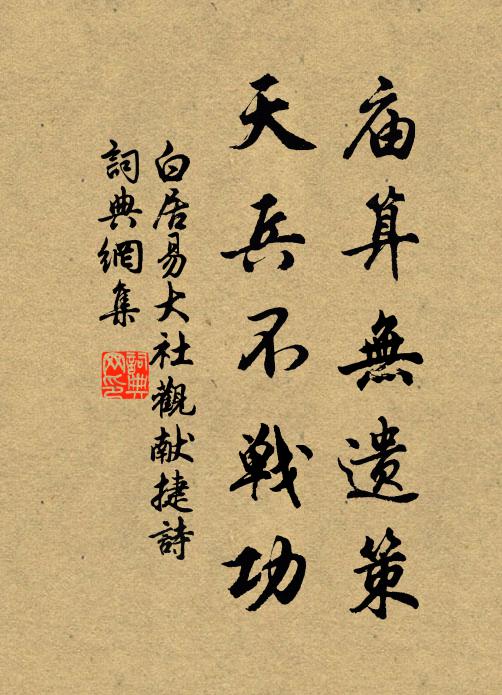 庙算無遺策
天兵不戦功
白居易大社觀献捷詩
詞典網集
詞典网印